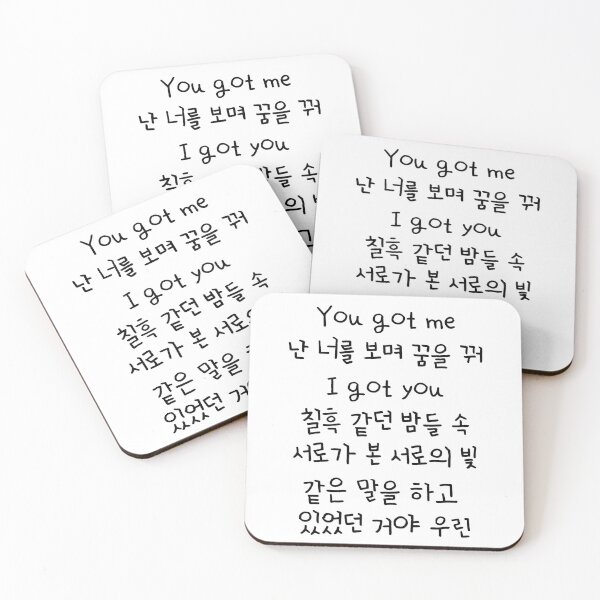 You got me
난 너를 보며 꿈을 꿔
I got you
들 속
You got me
난 너를 보며 꿈을 꿔
I got you
칠흑 같던 밤들 속
서로가 본 서로의 빛
You got me
난 너를 보며 꿈을 꿔
I got you
칠흑 같던 밤들 속
서로가 본 서로의
같은 말을
있었던 거야
You got me
난 너를 보며 꿈을 꿔
I got you
칠흑 같던 밤들 속
서로가 본 서로의 빛
같은 말을 하고
있었던 거야 우린